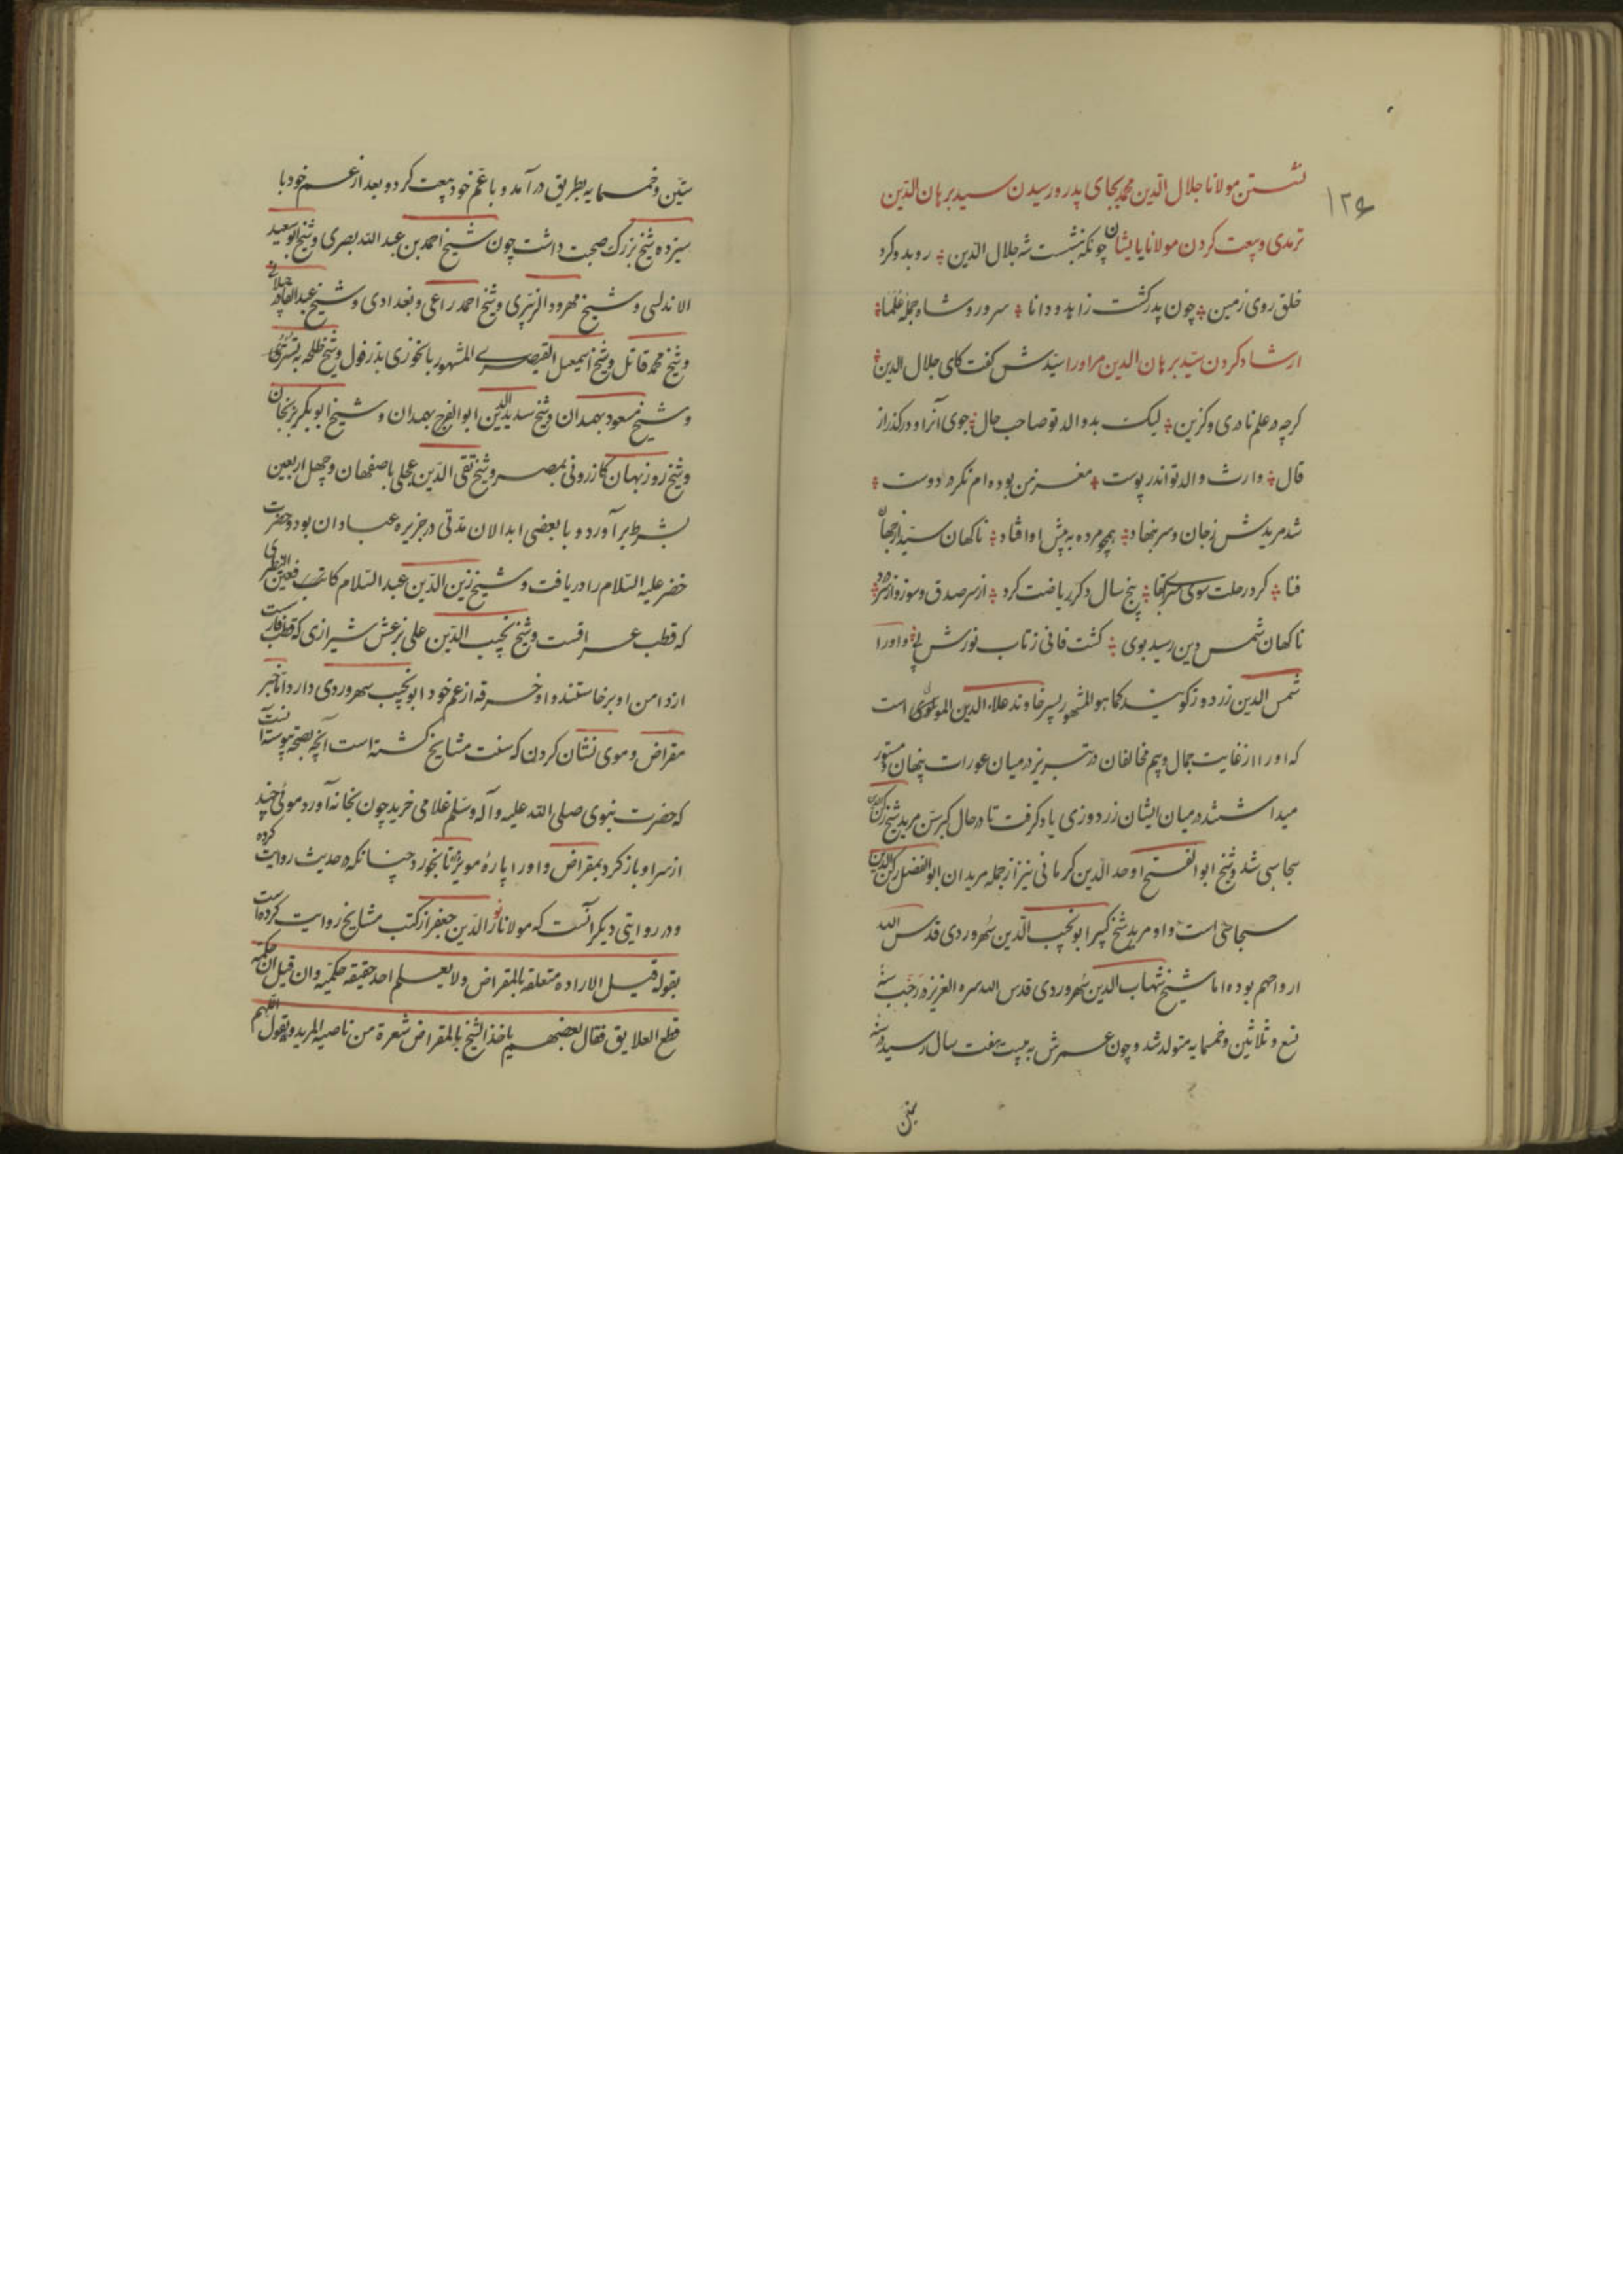 ۱۳۶
نشستن مولانا جلال الدین محمد بجای پدر و رسیدن سید برهان الدین
ترمدی و بیعت کردن مولانا با یشان چونکه بنشست شه جلال الدین رو بدو کرد
خلق روی زمین چون پدر گشت زاهد و دانا سرور و شاه جمله علما
ارشاد کردن سید برهان الدین مر او را سیدش گفت کای جلال الدین
گرچه در علم نادری و گزین لیک بد والد تو صاحب حال جوی آنرا و در گذر از
قال وارث والد تو اندر پوست مغز من بوده ام نگر در دوست
شد مریدش ز جان و سر بنهاد همچو مرده به پیش او افتاد ناگهان سید از جهان
فنا کرد رحلت سوی سرای بقا پنج سال دگر ریاضت کرد از سر صدق و سوز و از سر درد
ناگهان شمس دین رسید بوی گشت فانی ز تاب نورش فی و او را
شمس الدین زردوز گویند کما هو المشهور پسر خاوند علاء الدین الموتی است
که او را از غایت جمال و بیم مخالفان در تبریز در میان عورات پنهان و مستور
میداشتند در میان ایشان زردوزی یاد گرفت تا در حال کبر سن مرید شیخ رکن الدین
سجاسی شد و شیخ ابو الفتح اوحد الدین کرمانی نیز از جمله مریدان ابو الفضل رکن الدین
سجاسی است و او مرید شیخ کبیر ابو نجیب الدین سهروردی قدس الله
ارواحهم بوده اما شیخ شهاب الدین سهروردی قدس الله سره العزیز در رجب سنه
تسع و ثلاثین و خمسمایه متولد شد و چون عمرش به بیست هفت سال رسید در سنه
ستین و خمسمایه بطریق در آمد و با عم خود بیعت کرد و بعد از عم خود با
سیزده شیخ بزرگ صحبت داشت چون شیخ احمد بن عبد الله بصری و شیخ ابو سعید
الاندلسی و شیخ مهرود الزبیری و شیخ احمد راعی و بغدادی و شیخ عبد القادر جیلانی
و شیخ محمد قاتل و شیخ اسمعیل القیصری المشهور بالخوزی بدزفول و شیخ طلحه به تستری
و شیخ مسعود بهمدان و شیخ سدید الدین ابو الفرج بهمدان و شیخ ابو بکر بزنجان
و شیخ روزبهان کازرونی بمصر و شیخ تقی الدین عجلی باصفهان و چهل اربعین
بشرط بر آورد و با بعضی ابدالان مدتی در جزیره عبادان بود و حضرت
خضر علیه السلام را دریافت و شیخ زین الدین عبد السلام کاتب
که قطب عراقست و شیخ نجیب الدین علی بزغش شیرازی که قطب فارست
از دامن او برخاستند و او خرقه از عم خود ابو نجیب سهروردی دارد اما خبر
مقراض و موی نشان کردن که سنت مشایخ گشته است آنچه بصحت پیوسته آنست
که حضرت نبوی صلی الله علیه و آله و سلم غلامی خرید چون بخانه آورد موئی چند
از سر او باز کرد بمقراض و او را پاره مویز داد تا بخورد چنانکه در حدیث روایت کرده
و در روایتی دیگر آنست که مولانا نور الدین جعفر از کتب مشایخ روایت کرده است
بقوله قیل الاراده متعلقه بالمقراض و لا یعلم احد حقیقه حکمته و ان قیل ان حکمته
قطع العلایق فقال بعضهم یاخذ الشیخ بالمقراض شعرة من ناصیه المرید و یقول اللهم